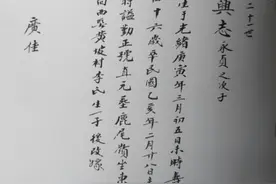 二十世
興志永貞之次子
生于光緒庚寅年三月初五日未時壽
十六歲卒民國乙亥年二月廿八日
特諡勤正號直元塟鹿尾黄生東
向西娶黄坡村李氏生一子後改嫁
廣佳